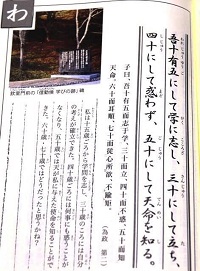 わ
吾十有五にして学に志し、三十にして立ち、
四十にして惑わず、五十にして天命を知る。
子曰、吾十有五而志于学、三十而立、四十而不惑、五十而知
天命、六十而耳順、七十而従心所欲、不踰矩。
(為政 第二)
私は十五歳ころから学問を志し、三十歳のころには自分
の考えが確立できた。四十歳ごろには何事にも惑うことが
なくなり、五十歳では天が私に与えた使命を知ることがで
きた。六十・七十歳ではどうだったと思うかね?